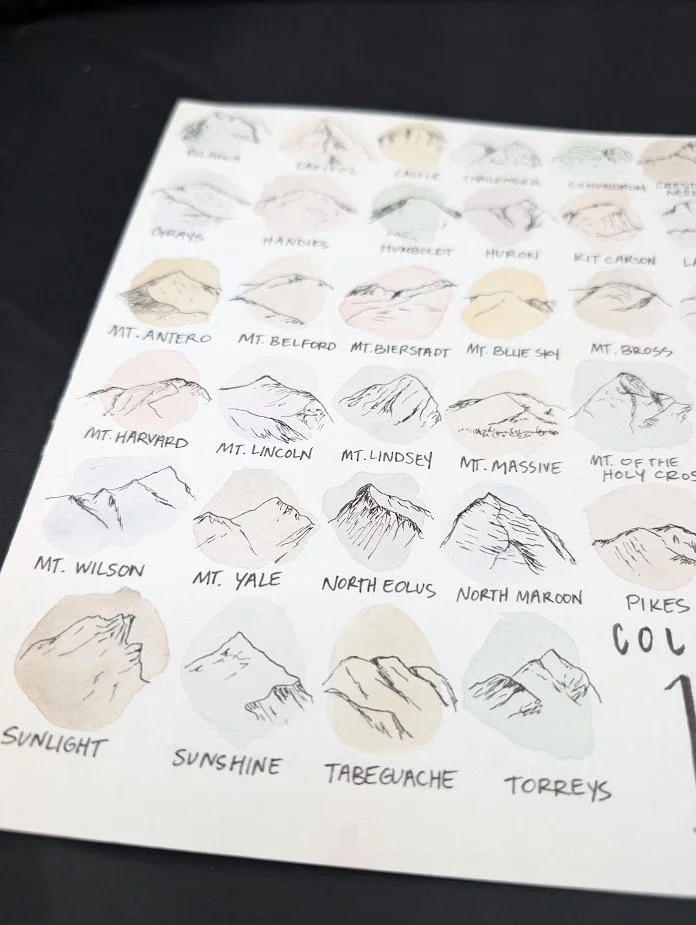 BLANCA CAPITOL CASTLE CHALLENGER CONUNDRUM CREST
NEED
GRAYS HANDIES HUMBOLDT HURON KIT CARSON LA
MT. ANTERO MT. BELFORD MT. BIERSTADT MT. BLUE SKY MT. BROSS
MT. HARVARD MT. LINCOLN MT. LINDSEY MT. MASSIVE MT. OF THE
HOLY CROS
MT. WILSON MT. YALE NORTH EOLUS NORTH MAROON PIKES
COL
SUNLIGHT SUNSHINE TABEGUACHE TORREYS